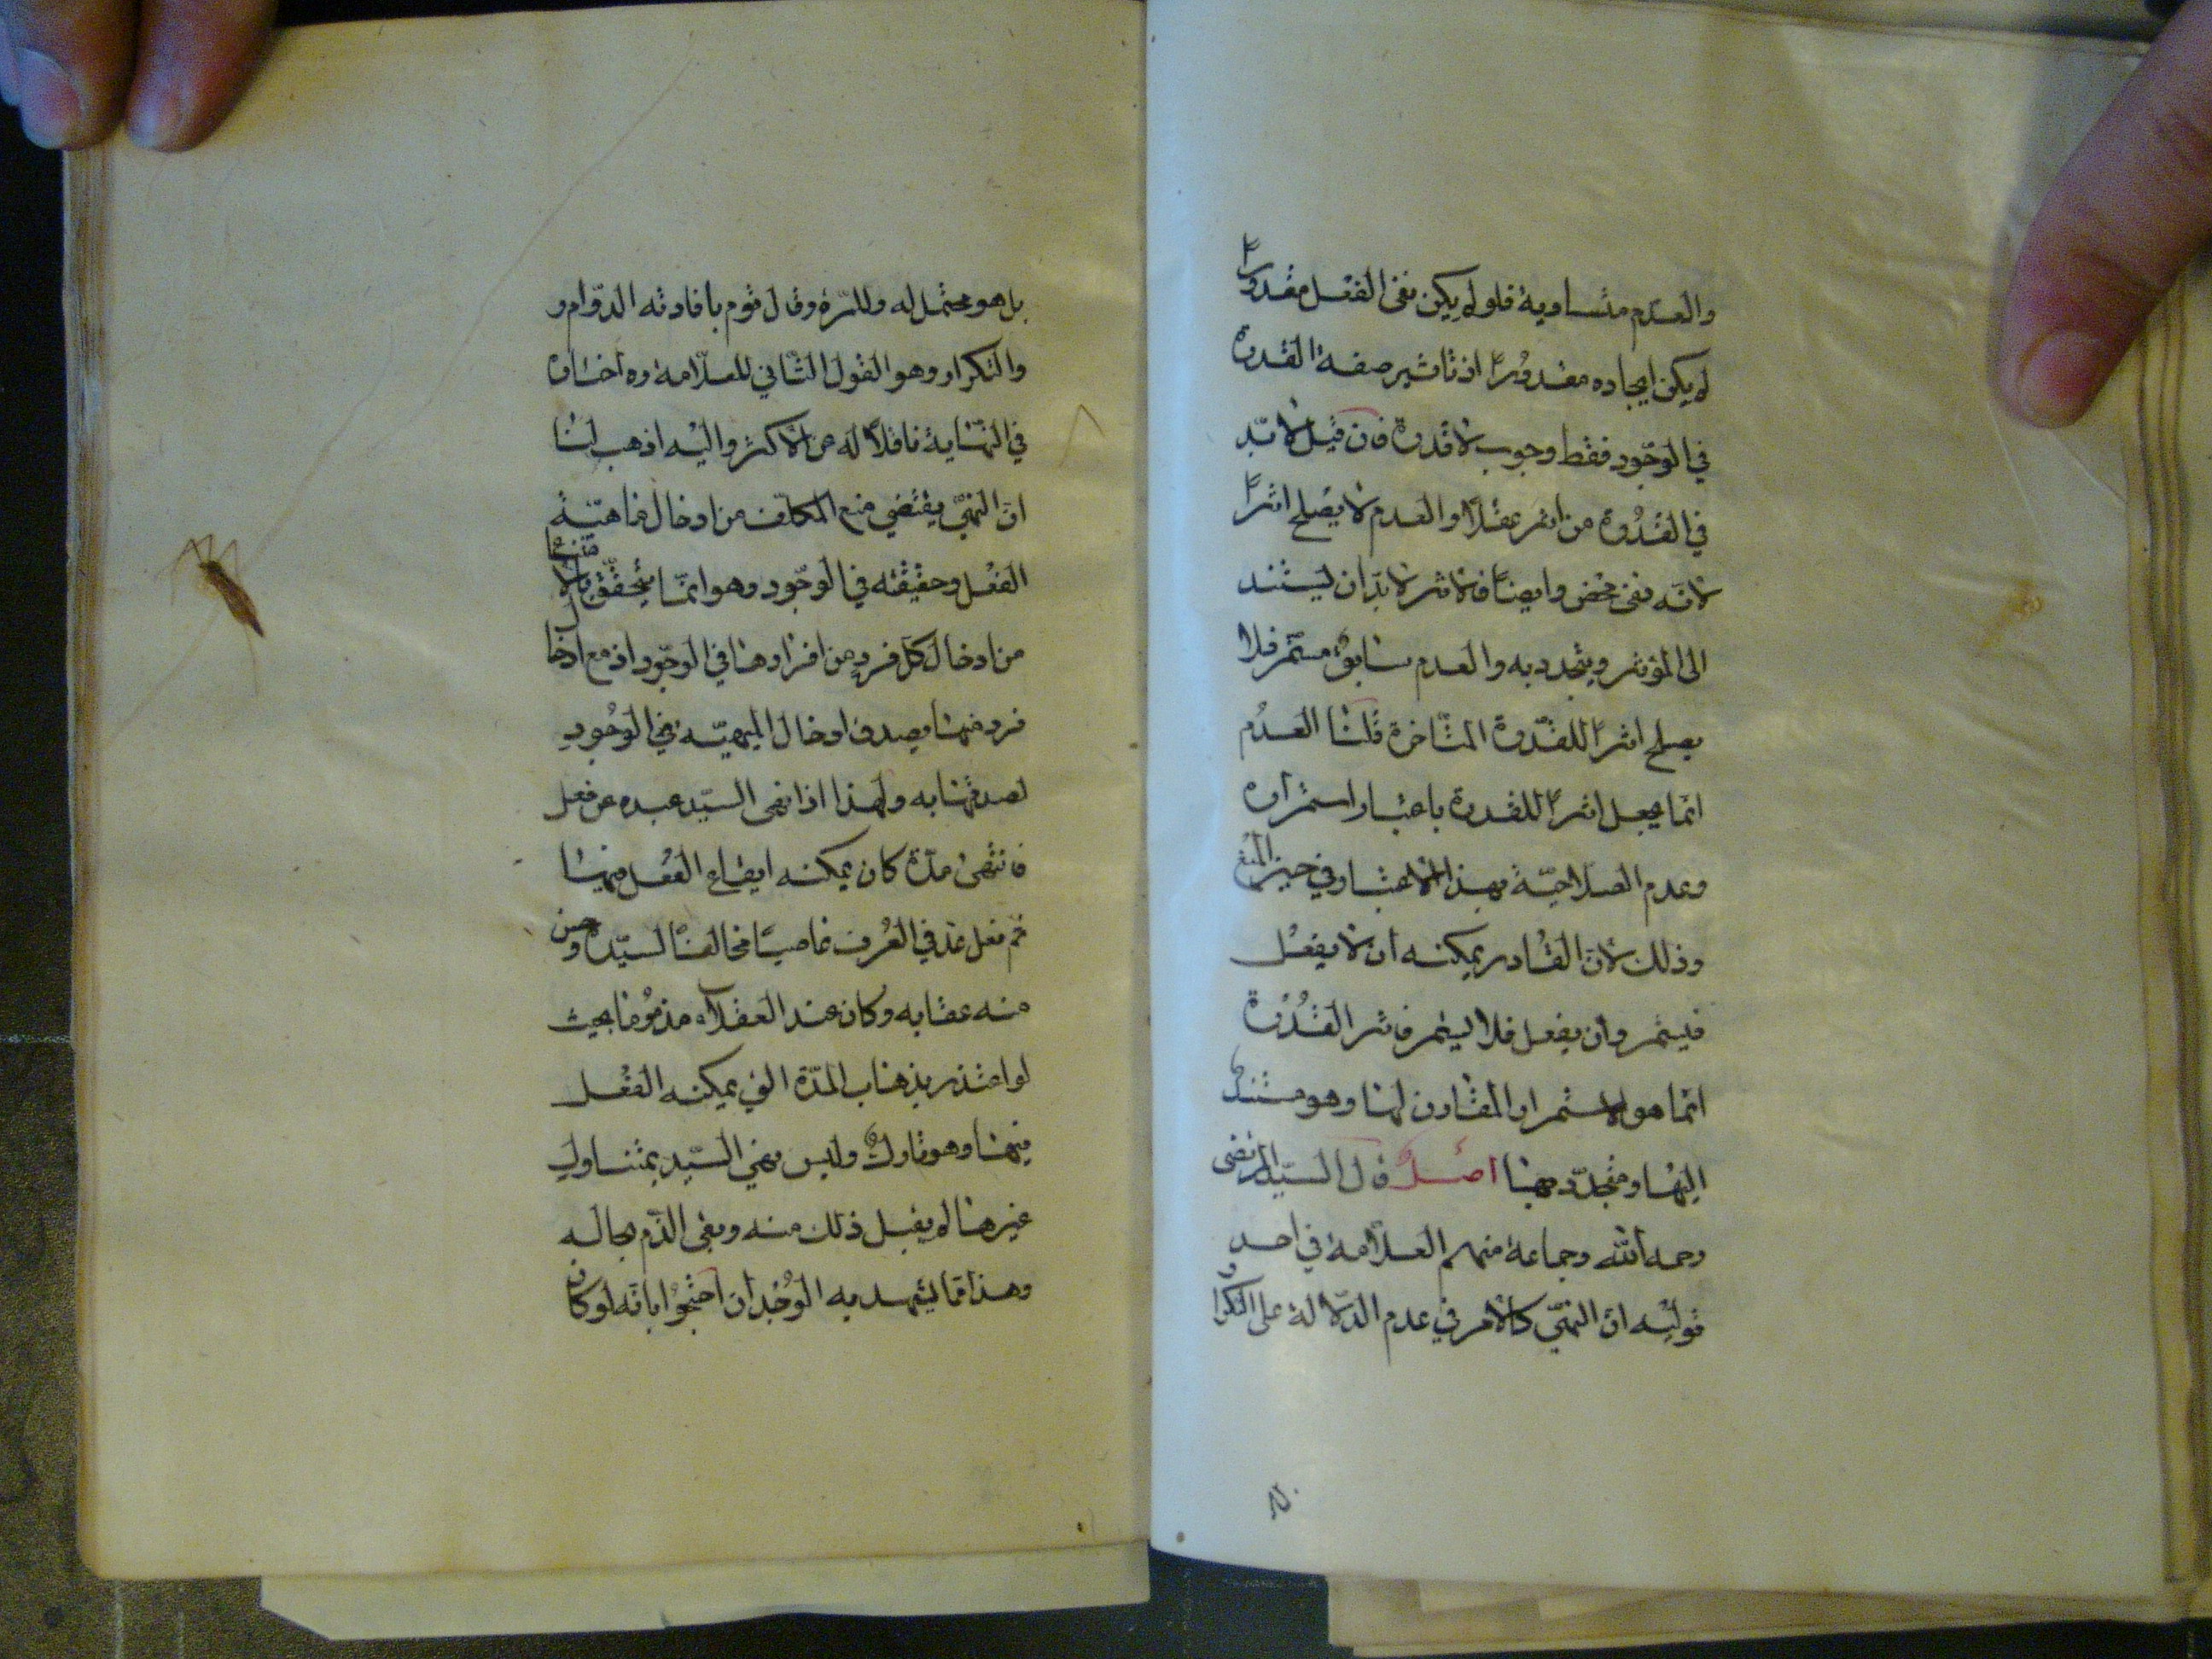 والعدم متساوية فلو لم يكن نفى الفعل مقدورا
لم يكن ايجاده مقدورا اذ تاثير صفة القدرة
في الوجود فقط وجوب لا قدرة فان قيل لا بد
في القدرة من اثر عقلا والعدم لا يصلح اثرا
لانه نفى محض وايضا فالاثر لا بد ان يستند
الى المؤثر ويتجدد به والعدم سابق مستمر فلا
يصلح اثرا للقدرة المتاخرة قلنا العدم
انما يجعل اثرا للقدرة باعتبار استمراره
وعدم الصلاحية بهذا الاعتبار في حيز المنع
وذلك لان القادر يمكنه ان لا يفعل
فيستمر وان يفعل فلا يستمر فاثر القدرة
انما هو الاستمرار المقارن لها وهو مستند
اليها ومتجدد بها اصل قال السيد المرتضى
رحمه الله وجماعة منهم العلامة في احد
قوليه ان النهي كالامر في عدم الدلالة على التكرار
بل هو محتمل له وللمرة وقال قوم بافادته الدوام و
والتكرار وهو القول الثاني للعلامة ره اختاره
في النهاية ناقلا له عن الاكثر واليه اذهب لنا
ان النهي يقتضي منع المكلف من ادخال ماهية
الفعل وحقيقته في الوجود وهو انما يتحقق بالامتناع
من ادخال كل فرد من افرادها في الوجود اذ مع ادخال
فرد منها يصدق ادخال المهية في الوجود
لصدقها به ولهذا اذا نهى السيد عبده عن فعل
فانتهى مدة كان يمكنه ايقاع الفعل فيها
ثم فعل عد في العرف عاصيا مخالفا لسيده وحسن
منه عقابه وكان عند العقلاء مذموما بحيث
لو اعتذر بذهاب المدة التي يمكنه الفعل
فيها وهو تارك وليس نهي السيد بمتناول
غيرها لم يقبل ذلك منه وبقى الذم بحاله
وهذا مما يشهد به الوجدان احتجوا بانه لو كان